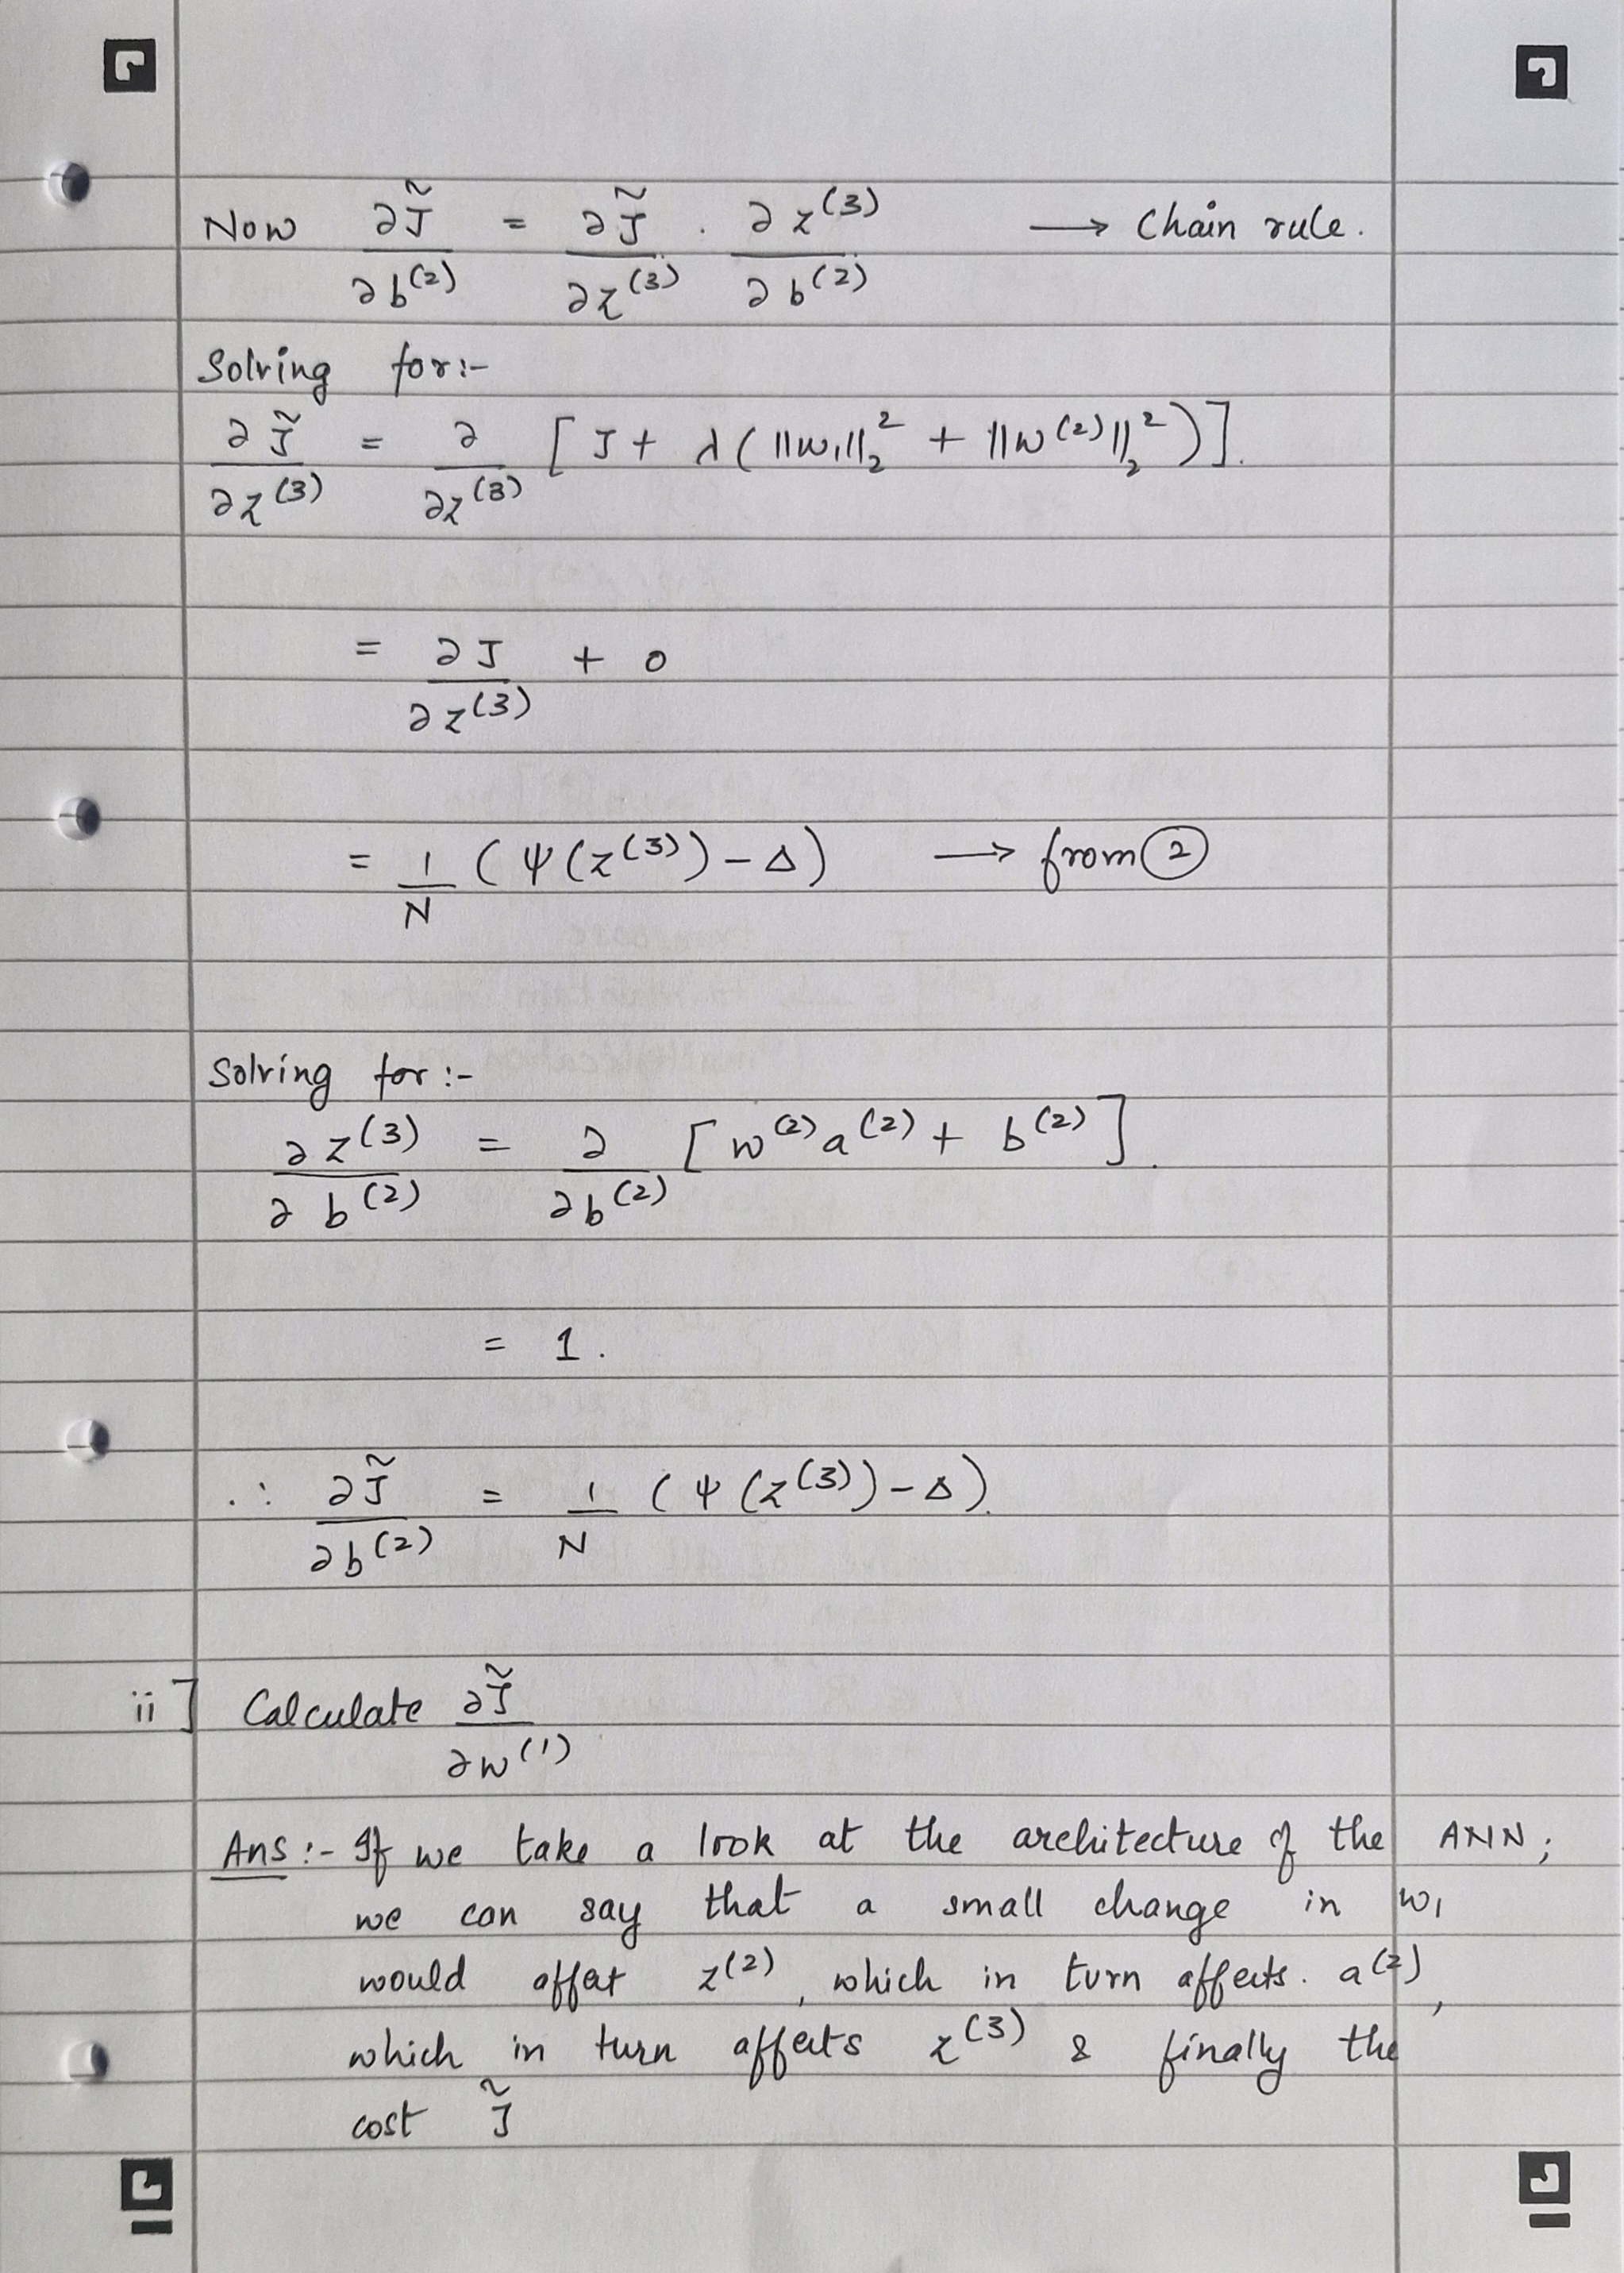 Now ∂J̃/∂b^(2) = ∂J̃/∂z^(3) . ∂z^(3)/∂b^(2) → Chain rule.
Solving for:-
∂J̃/∂z^(3) = ∂/∂z^(3) [J + λ(||W₁||₂² + ||W^(2)||₂²)].
= ∂J/∂z^(3) + 0
= 1/N (ψ(z^(3)) - Δ) → from ②
Solving for :-
∂z^(3)/∂b^(2) = ∂/∂b^(2) [W^(2)a^(2) + b^(2)].
= 1.
∴ ∂J̃/∂b^(2) = 1/N (ψ(z^(3)) - Δ).
ii] Calculate ∂J̃/∂W^(1)
Ans :- If we take a look at the architecture of the ANN;
we can say that a small change in W₁
would affect z^(2), which in turn affects. a^(2),
which in turn affects z^(3) & finally the
cost J̃